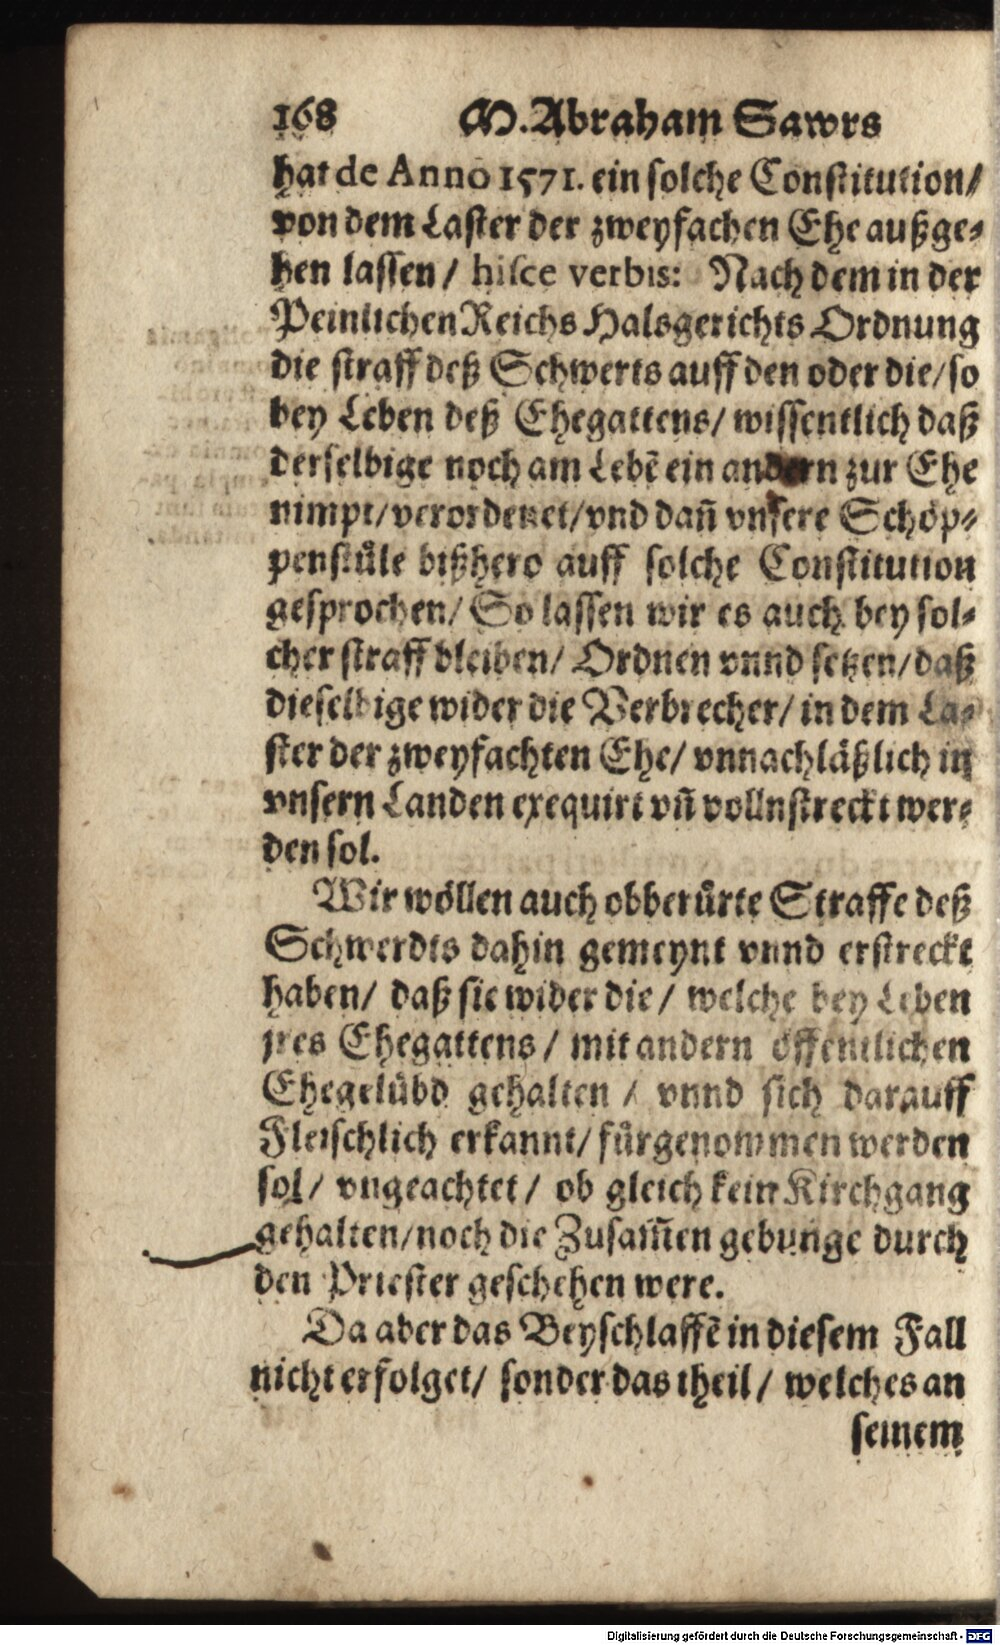 168 M. Abraham Sawrs
hat de Anno 1571. ein solche Constitution/
von dem Laster der zweyfachen Ehe außge-
hen lassen/ hisce verbis: Nach dem in der
Peinlichen Reichs Halsgerichts Ordnung
die straff deß Schwerts auff den oder die/ so
bey Leben deß Ehegattens/ wissentlich daß
derselbige noch am Lebē ein andern zur Ehe
nimpt/ verordenet/ vnd dañ vnsere Schöp-
penstüle bißhero auff solche Constitution
gesprochen/ So lassen wir es auch bey sol-
cher straff bleiben/ Ordnen vnnd setzen/ daß
dieselbige wider die Verbrecher/ in dem La-
ster der zweyfachten Ehe/ vnnachläßlich in
vnsern Landen exequirt vñ vollnstreckt wer-
den sol.
Wir wöllen auch obberürte Straffe deß
Schwerdts dahin gemeynt vnnd erstreckt
haben/ daß sie wider die/ welche bey Leben
jres Ehegattens/ mit andern öffentlichen
Ehegelübd gehalten/ vnnd sich darauff
Fleischlich erkannt/ fürgenommen werden
sol/ vngeachtet/ ob gleich kein Kirchgang
gehalten/ noch die Zusam̄en gebunge durch
den Priester geschehen were.
Da aber das Beyschlaffē in diesem Fall
nicht erfolget/ sonder das theil/ welches an
seinem
Digitalisierung gefördert durch die Deutsche Forschungsgemeinschaft - DFG